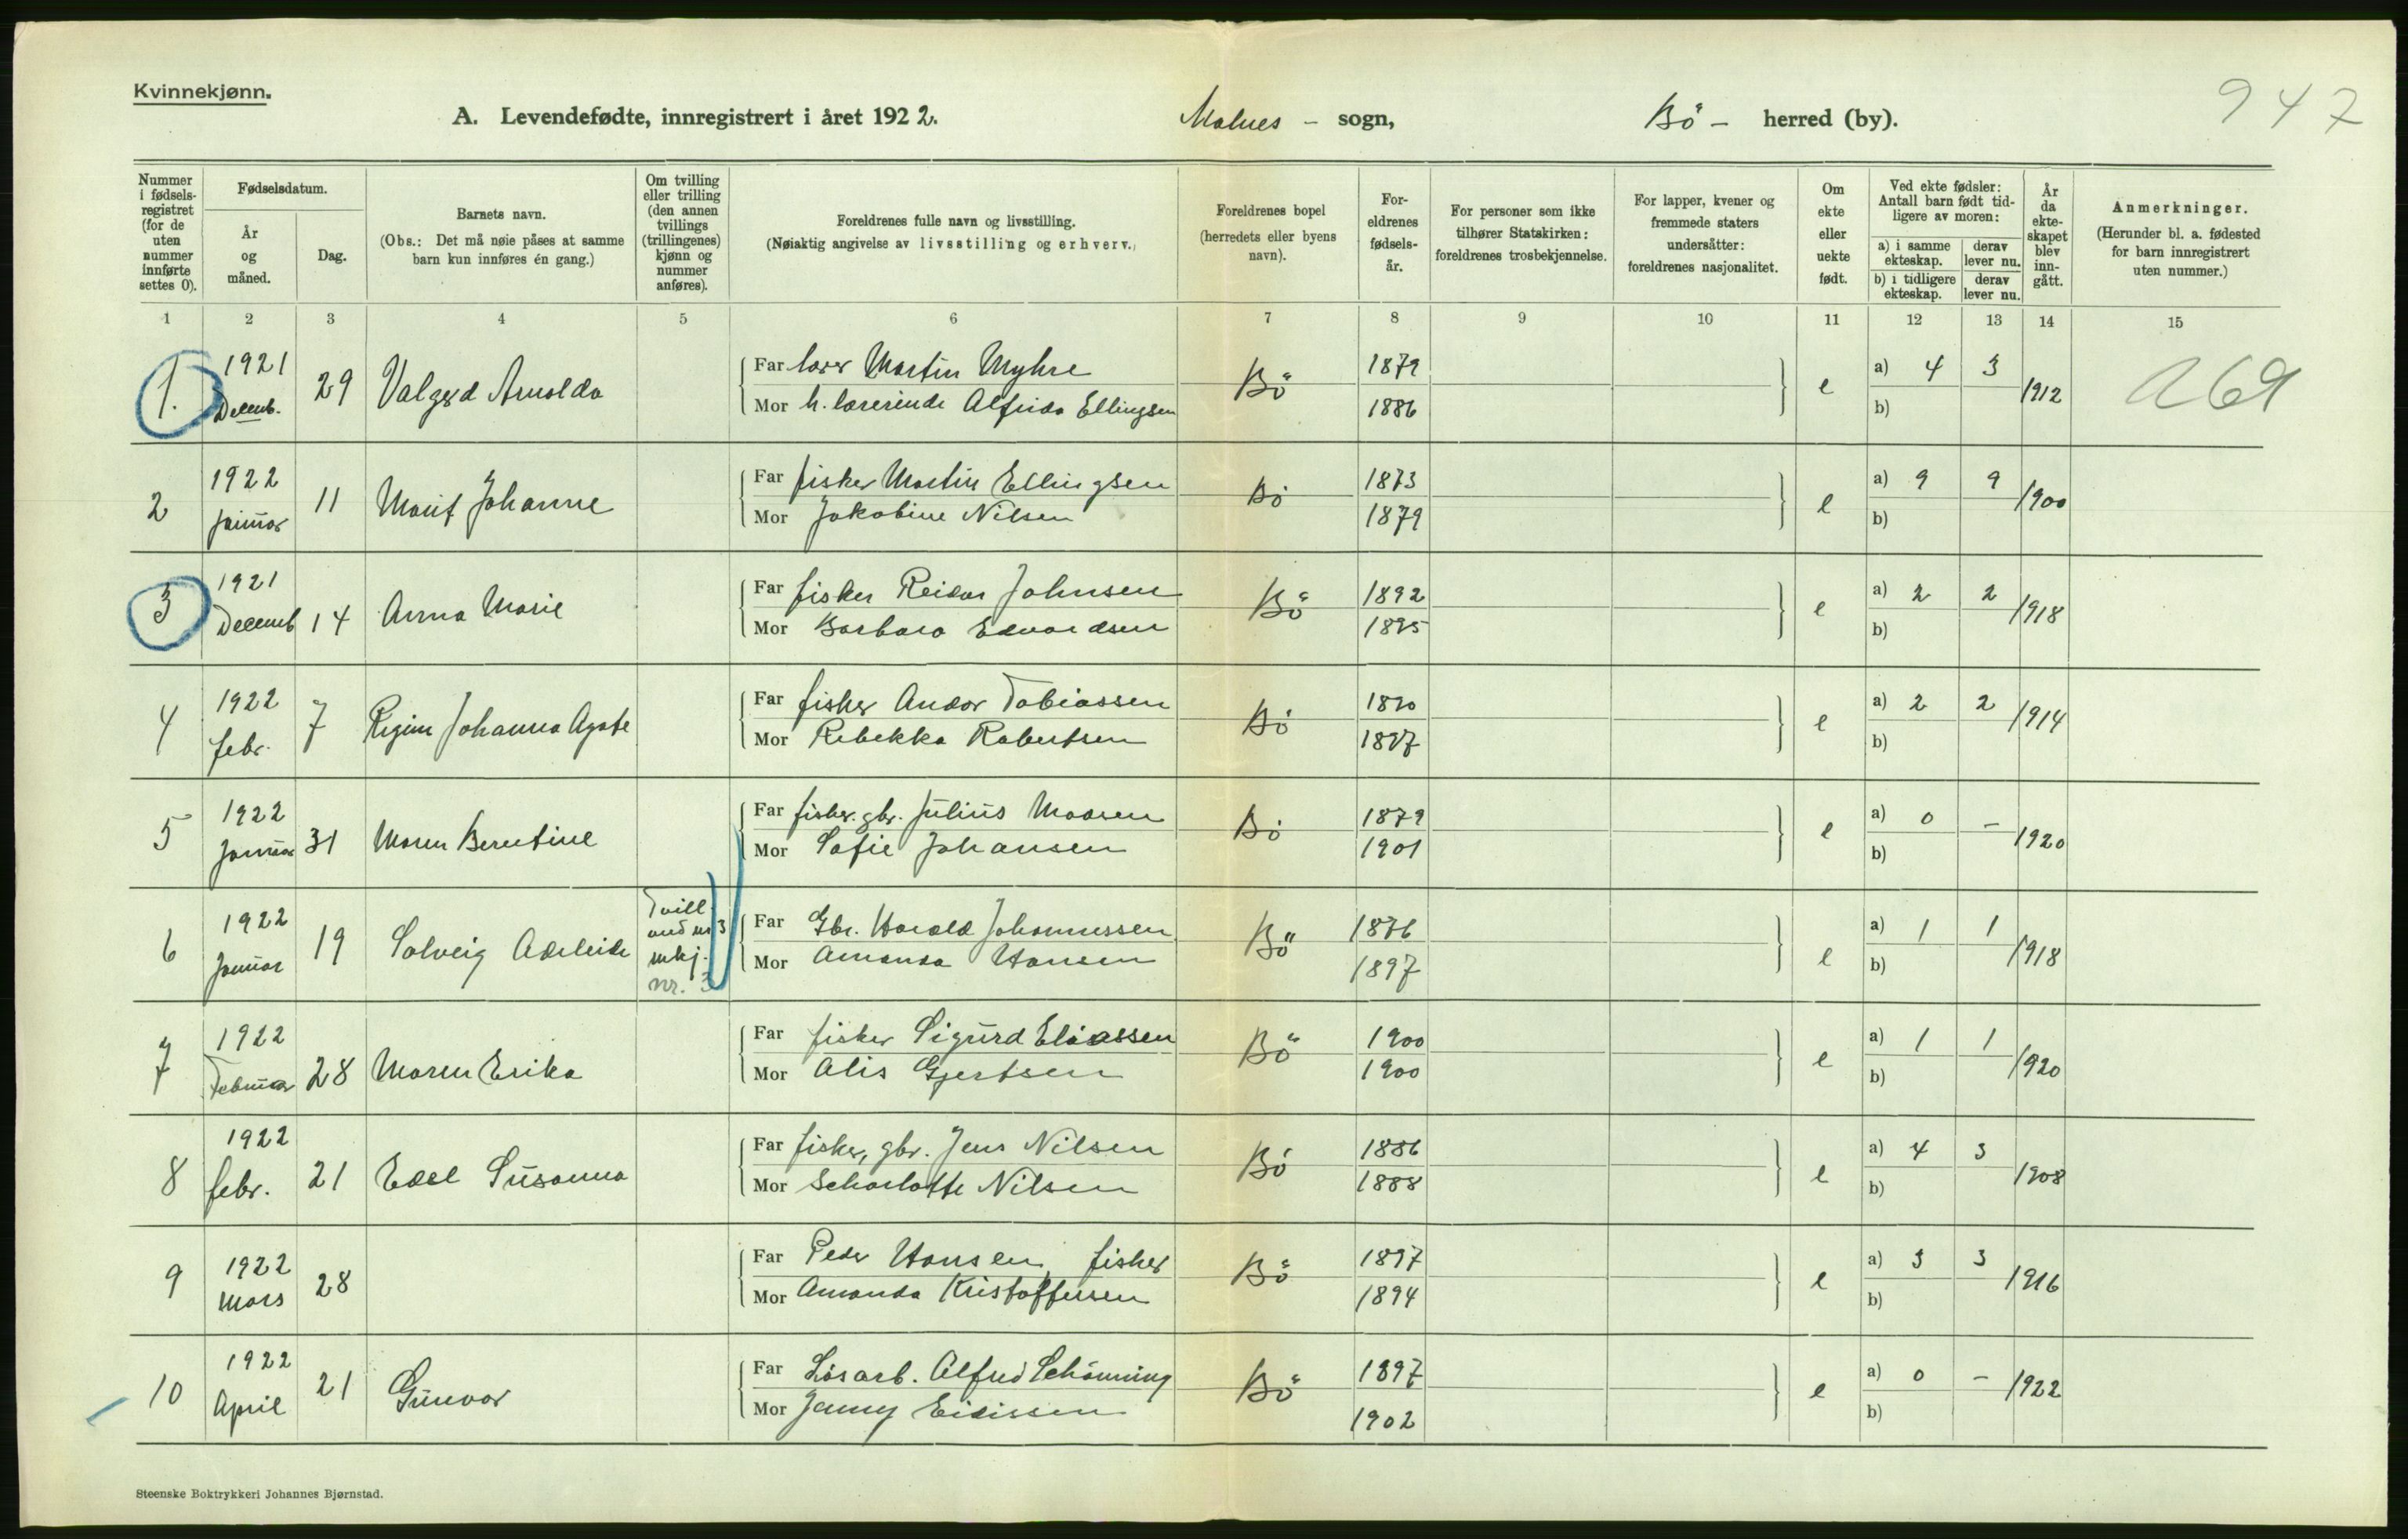 Kvinnekjønn.
A. Levendefødte, innregistrert i året 1922. Malnes - sogn, Bö - herred (by). 947
Nummer i fødselsregistret (for de uten nummer innførte settes 0).
Fødselsdatum.
År og måned.
Dag.
Barnets navn.
(Obs.: Det må nøie påses at samme barn kun innføres én gang.)
Om tvilling eller trilling (den annen tvillings (trillingenes) kjønn og nummer anføres).
Foreldrenes fulle navn og livsstilling.
(Nøiaktig angivelse av livsstilling og erhverv.)
Foreldrenes bopel (herredets eller byens navn).
Foreldrenes fødselsår.
For personer som ikke tilhører Statskirken: foreldrenes trosbekjennelse.
For lapper, kvener og fremmede staters undersåtter: foreldrenes nasjonalitet.
Om ekte eller uekte født.
Ved ekte fødsler: Antall barn født tidligere av moren:
a) i samme ekteskap. derav lever nu.
b) i tidligere ekteskap. derav lever nu.
År da ekteskapet blev inngått.
Anmerkninger.
(Herunder bl. a. fødested for barn innregistrert uten nummer.)
1 2 3 4 5 6 7 8 9 10 11 12 13 14 15
1. 1921 Decemb. 29 Valgerd Arnolda Far lærer Martin Myhre Bö 1879 e a) 4 3 1912 269
Mor h. lærerinde Alfrida Ellingsen 1886 b)
2 1922 Januar 11 Marit Johanne Far fisker Martin Ellingsen Bö 1873 e a) 9 9 1900
Mor Jakobine Nilsen 1879 b)
3 1921 Decemb 14 Anna Marie Far fisker Reidar Johnsen Bö 1892 e a) 2 2 1918
Mor Barbara Edvardsen 1895 b)
4 1922 febr. 7 Regine Johanna Agate Far fisker Andor Tobiassen Bö 1890 e a) 2 2 1914
Mor Rebekka Robertsen 1887 b)
5 1922 Januar 31 Maren Berntine Far fisker. gbr. Julius Madsen Bö 1879 e a) 0 - 1920
Mor Sofie Johansen 1901 b)
6 1922 Januar 19 Solveig Adeleide Tvill. med nr 3 mkj. nr. 3 Far Gbr. Harald Johannessen Bö 1876 e a) 1 1 1918
Mor Amanda Hansen 1897 b)
7 1922 Februar 28 Maren Erika Far fisker Sigurd Eliassen Bö 1900 e a) 1 1 1920
Mor Alis Gjertsen 1900 b)
8 1922 febr. 21 Edel Susanna Far fisker, gbr. Jens Nilsen Bö 1886 e a) 4 3 1908
Mor Scharlotte Nilsen 1888 b)
9 1922 Mars 28 Far Peder Hansen, fisker Bö 1897 e a) 3 3 1916
Mor Amanda Kristoffersen 1894 b)
10 1922 April 21 Gunvor Far Løsarb. Alfred Schönning Bö 1897 e a) 0 - 1922
Mor Jenny Eidissen 1902 b)
Steenske Boktrykkeri Johannes Bjørnstad.